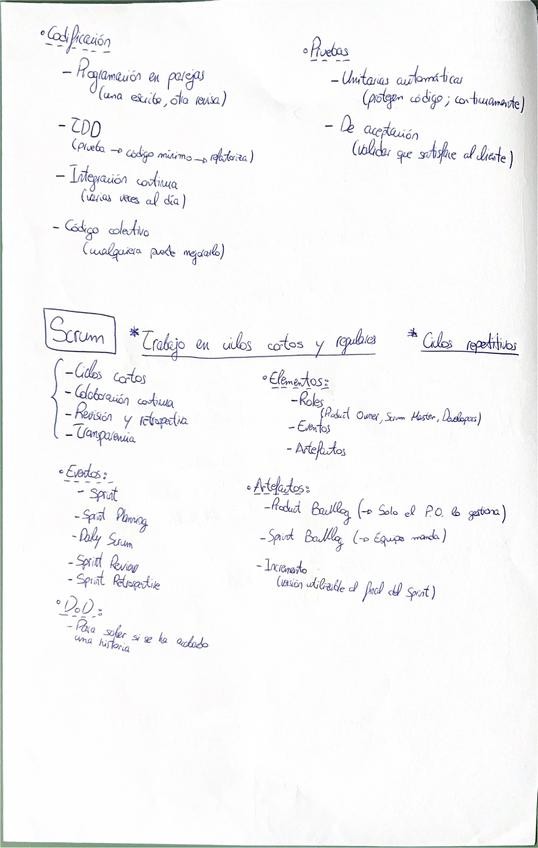 • Codificación
- Programación en parejas
(una escribe, otra revisa)
- TDD
(prueba → código mínimo → refactoriza)
- Integración continua
(varias veces al día)
- Código colectivo
(cualquiera puede mejorarlo)
• Pruebas
- Unitarias automáticas
(protegen código; continuamente)
- De aceptación
(validar que satisface al cliente)
Scrum
* Trabajo en ciclos cortos y regulares
* Ciclos repetitivos
- Ciclos cortos
- Colaboración continua
- Revisión y retrospectiva
- Transparencia
• Elementos:
- Roles
(Product Owner, Scrum Master, Developers)
- Eventos
- Artefactos
• Eventos:
- Sprint
- Sprint Planning
- Daily Scrum
- Sprint Review
- Sprint Retrospective
• Artefactos:
- Product Backlog (→ Solo el P.O. lo gestiona)
- Sprint Backlog (→ Equipo manda)
- Incremento
(versión utilizable al final del Sprint)
• DoD:
- Para saber si se ha acabado
una historia